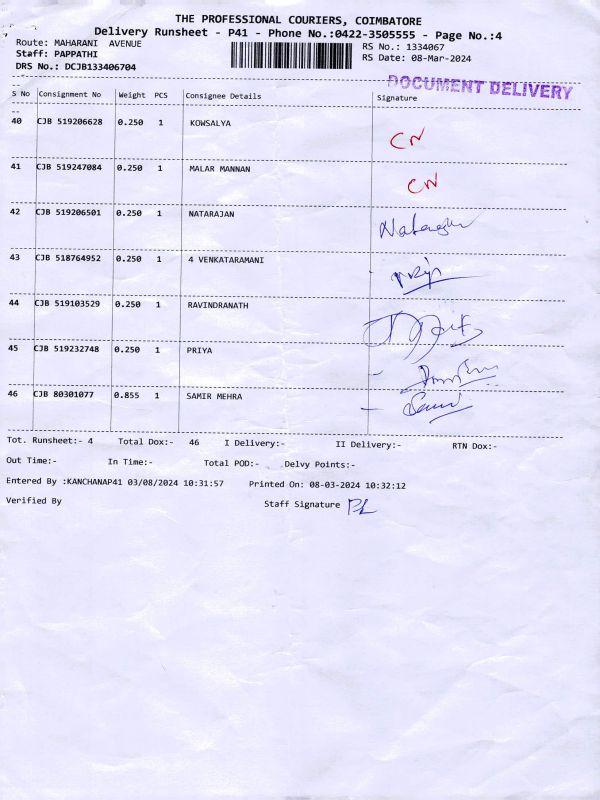 THE PROFESSIONAL COURIERS, COIMBATORE
Delivery Runsheet - P41 - Phone No.:0422-3505555 - Page No.:4
Route: MAHARANI AVENUE RS No.: 1334067
Staff: PAPPATHI RS Date: 08-Mar-2024
DRS No.: DCJB133406704
DOCUMENT DELIVERY
S No Consignment No Weight PCS Consignee Details Signature
40 CJB 519206628 0.250 1 KOWSALYA CN
41 CJB 519247084 0.250 1 MALAR MANNAN CN
42 CJB 519206501 0.250 1 NATARAJAN
43 CJB 518764952 0.250 1 4 VENKATARAMANI
44 CJB 519103529 0.250 1 RAVINDRANATH
45 CJB 519232748 0.250 1 PRIYA
46 CJB 80301077 0.855 1 SAMIR MEHRA
Tot. Runsheet:- 4 Total Dox:- 46 I Delivery:- II Delivery:- RTN Dox:-
Out Time:- In Time:- Total POD:- Delvy Points:-
Entered By :KANCHANAP41 03/08/2024 10:31:57 Printed On: 08-03-2024 10:32:12
Verified By Staff Signature